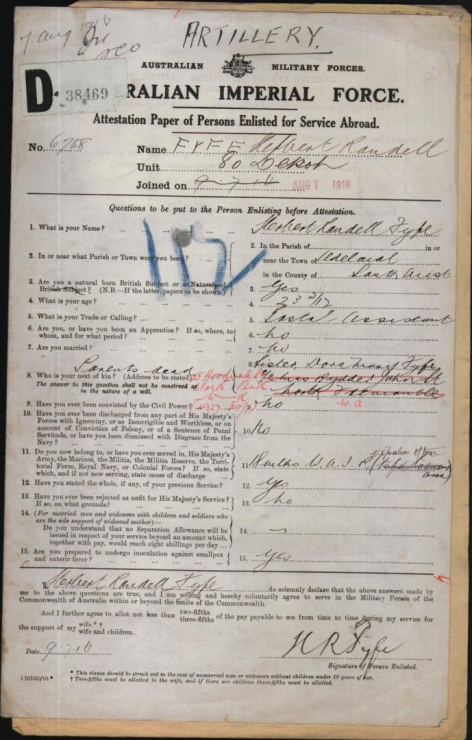 7. Aug 1916
ARTILLERY.
AUSTRALIAN MILITARY FORCES.
D 38469
RALIAN IMPERIAL FORCE.
Attestation Paper of Persons Enlisted for Service Abroad.
No. 6758 Name FYFE Herbert Randell
Unit 80 Depot
Joined on 9-7-16 AUG 7 1916
Questions to be put to the Person Enlisting before Attestation.
1. What is your Name? Herbert Randell Fyfe
2. In or near what Parish or Town were you born? 2. In the Parish of in or
near the Town
in the County of South Aust
3. Are you a natural born British Subject or a Naturalized
British Subject? (N.B.—If the latter, papers to be shown) 3. Yes
4. What is your age? 4. 23
5. What is your Trade or Calling? 5. Postal Assistant
6. Are you, or have you been an Apprentice? If so, where, to
whom, and for what period? 6. No
7. Are you married? 7. No
Parents dead Sister Dora Fyfe
8. Who is your next of kin? (Address to be stated) 8.
The answer to this question shall not be construed as
in the nature of a will. W.A
9. Have you ever been convicted by the Civil Power? 9. No
10. Have you ever been discharged from any part of His Majesty's
Forces with Ignominy, or as Incorrigible and Worthless, or on
account of Conviction of Felony, or of a Sentence of Penal
Servitude, or have you been dismissed with Disgrace from the
Navy? 10. No
11. Do you now belong to, or have you ever served in, His Majesty's
Army, the Marines, the Militia, the Militia Reserve, the Terri-
torial Force, Royal Navy, or Colonial Forces? If so, state
which, and if not now serving, state cause of discharge 11.
12. Have you stated the whole, if any, of your previous Service? 12. Yes
13. Have you ever been rejected as unfit for His Majesty's Service? If
so, on what grounds? 13. No
14. (For married men and widowers with children and soldiers who
are the sole support of widowed mother)—
Do you understand that no Separation Allowance will be
issued in respect of your service beyond an amount which,
together with pay, would reach eight shillings per day 14. —
15. Are you prepared to undergo inoculation against smallpox
and enteric fever? 15. Yes
112
I, Herbert Randell Fyfe do solemnly declare that the above answers made by
me to the above questions are true, and I am willing and hereby voluntarily agree to serve in the Military Forces of the
Commonwealth of Australia within or beyond the limits of the Commonwealth.
And I further agree to allot not less than two-fifths three-fifths of the pay payable to me from time to time during my service for
the support of my wife.*† wife and children.
Date 9.7.16 H R Fyfe
Signature of Person Enlisted.
* This clause should be struck out in the case of unmarried men or widowers without children under 18 years of age.
† Two-fifths must be allotted to the wife, and if there are children three-fifths must be allotted.